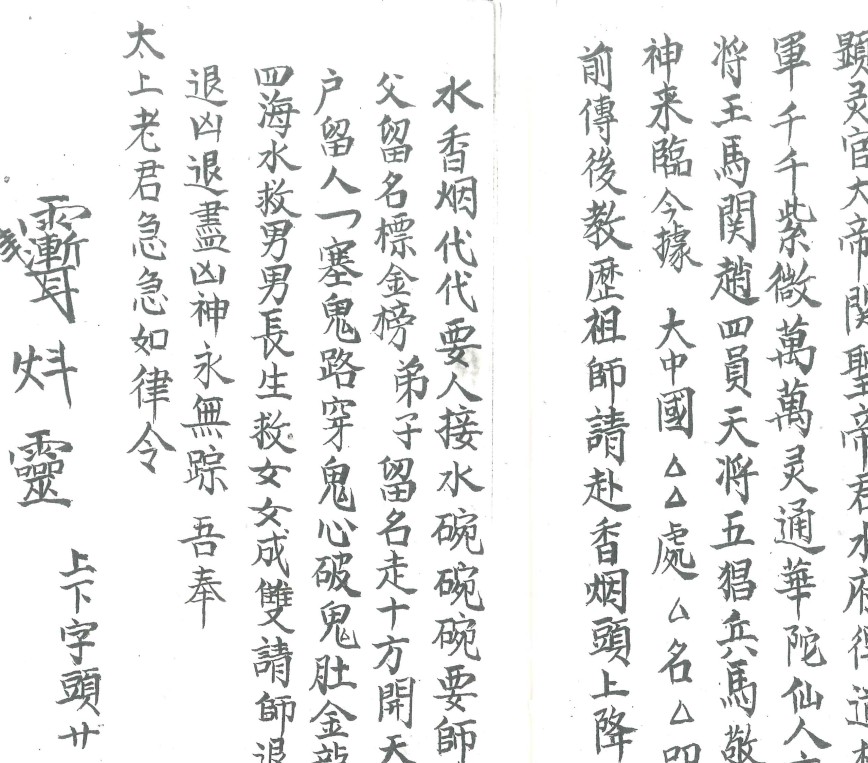 顕灵官大帝関聖帝君水府
軍千千紫微萬萬灵通華陀仙人
将王馬関趙四員天将五猖兵馬敬
神来臨今據 大中國△△處△名△
前傳後教歷祖師請赴香烟頭上降
水香烟代代要人接水碗碗碗要師
父留名標金榜弟子留名走十方開天
户留人一塞鬼路穿鬼心破鬼肚金
四海水救男男長生救女女成雙請師退
退凶退盡凶神永無踪 吾奉
太上老君急急如律令
靈
上下字頭廿